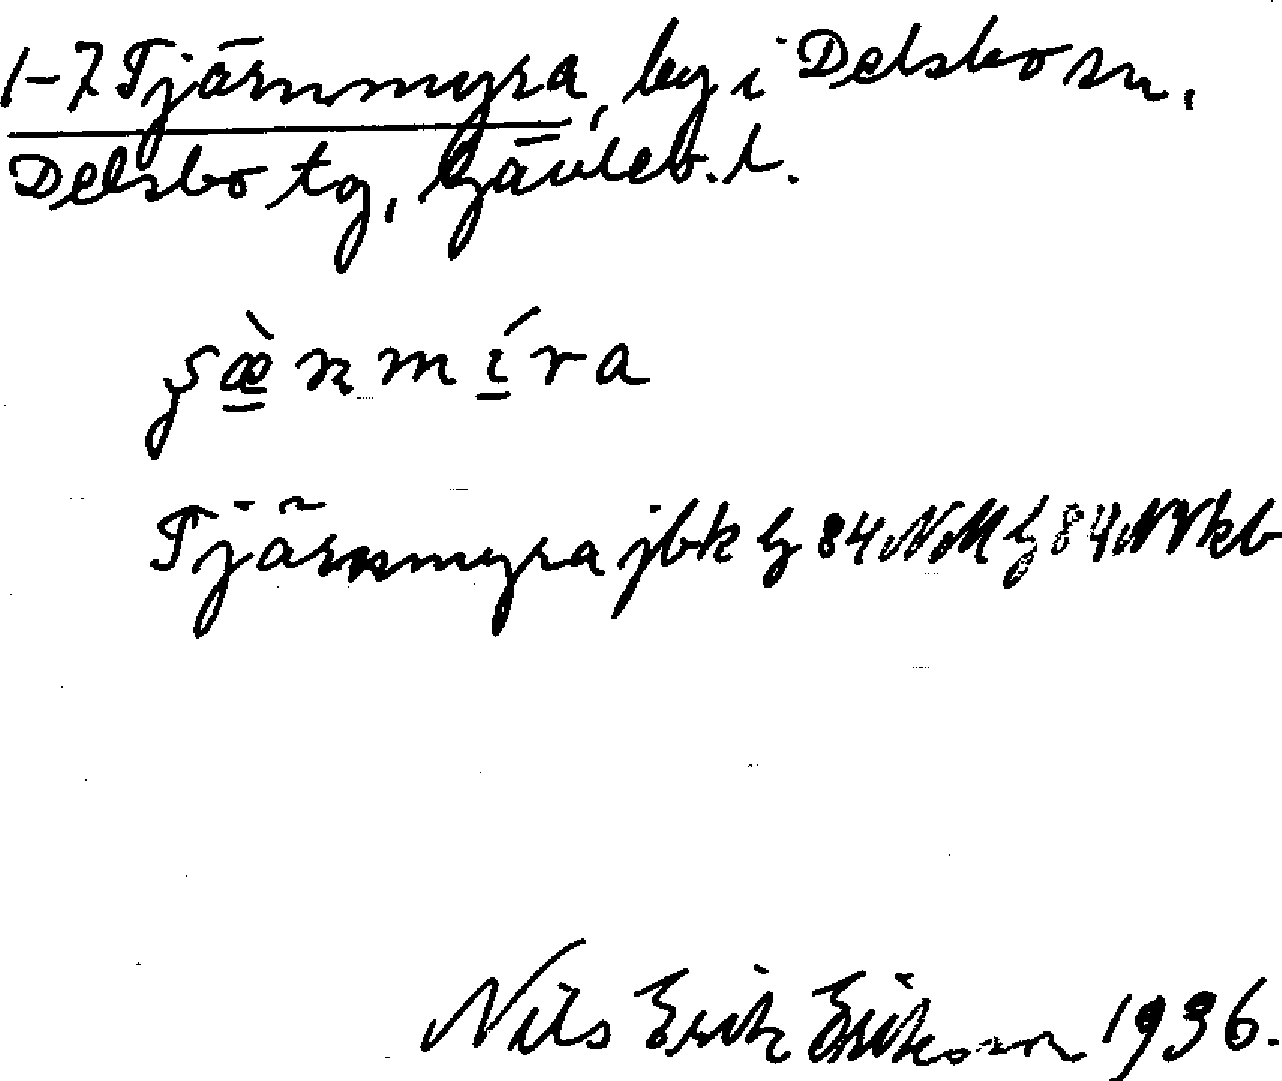 1-7 Tjärnmyra, by i Delsbo sn,
Delsbo tg, Gävleb. l.
Tjärnmyra jbk G 84 NM G 84 NV kb
Nils Erik Eriksson 1936.